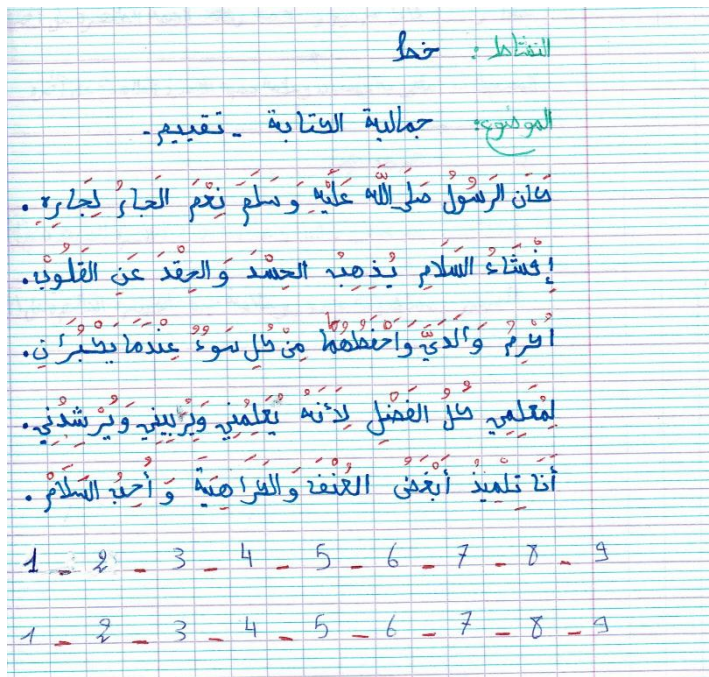 النشاط: خط
الموضوع: جمالية الكتابة - تقييم -
كَانَ الرَّسُولُ صَلَّى اللَّه عَلَيْهِ وَسَلَّمَ نِعْمَ الجَارُ لِجَارِهِ.
إِفْشَاءُ السَّلَامِ يُذْهِبُ الحَسَدَ وَالحِقْدَ عَنِ القُلُوبِ.
أُكْرِمُ وَالِدَيَّ وَأَحْفَظُهُمَا مِنْ كُلِّ سُوءٍ عِنْدَمَا يَكْبُرَانِ.
لِمُعَلِّمِي كُلُّ الفَضْلِ لِأَنَّهُ يُعَلِّمُنِي وَيُرَبِّينِي وَيُرْشِدُنِي.
أَنَا تِلْمِيذٌ أَبْغَضُ العُنْفَ وَالكَرَاهِيَّةَ وَأُحِبُّ السَّلَامَ.
1 - 2 - 3 - 4 - 5 - 6 - 7 - 8 - 9
1 - 2 - 3 - 4 - 5 - 6 - 7 - 8 - 9